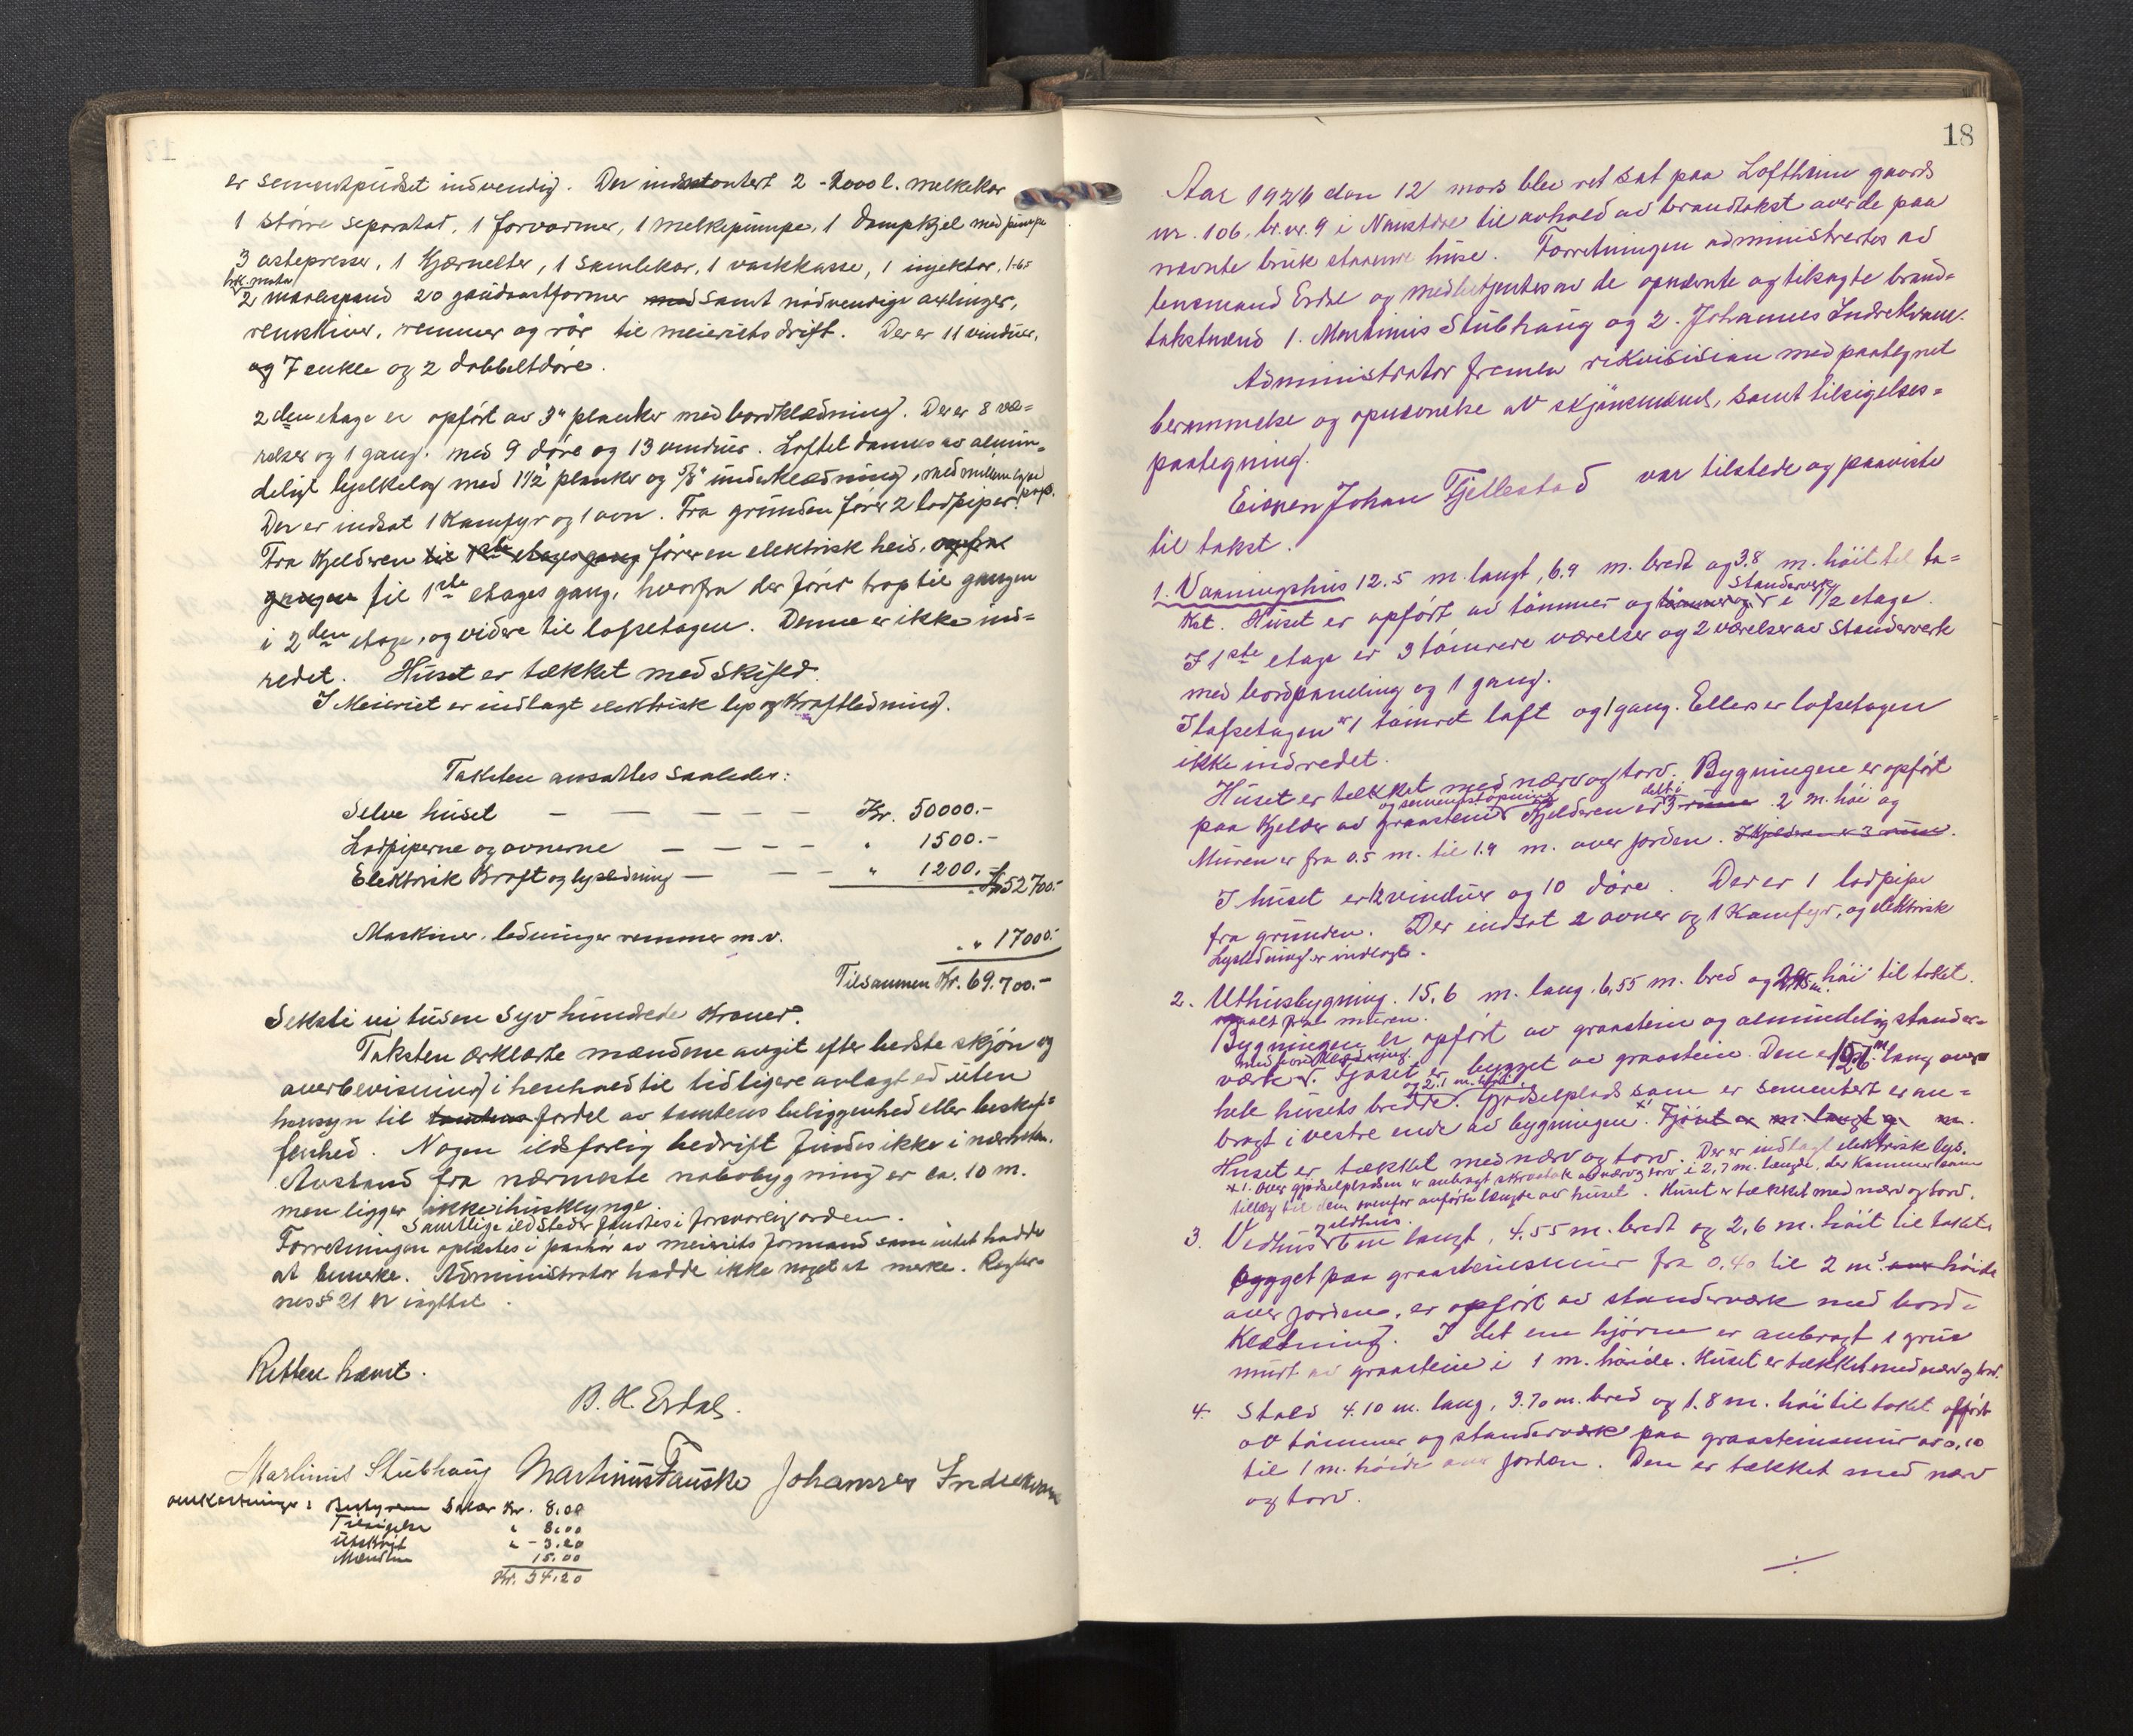 er sementpudset indvendig. Der indmontert 2 - 2000 l. melkekar
1 större separatat, 1 forvarmer, 1 melkepumpe, 1 Dampkjel med pumpe
3 ostepresser, 1 Kjærnelter, 1 Samlekar, 1 vaskkasse, 1 injektor, 1-6-
hk. motor
2 20 gaudaostformer med samt nödvendige axlinger,
remskiver, remmer og rör til meieriets drift. Der er 11 vinduer,
og 7 enkle og 2 dobbeltdöre.
2den etage er opfört av 3" planker med bordklædning. Der er 8 væ=
relser og 1 gang. med 9 döre og 13 vinduer. Loftet dannes av almin=
deligt bjelkelag med 1 1/2" planker og 5/8" underklædning, med mellemlagd
papp.
Der er indsat 1 Kamfyr og 1 ovn. Fra grunden förer 2 lodpiper.
Fra Kjelderen til 1ste etages gang förer en elektrisk heis, og fra
gangen til 1ste etages gang, hvorfra der förer trap til gangen
i 2den etage, og videre til lofsetagen. Denne er ikke ind=
redet. Huset er tækket med skifed.
I Meieriet er indlagt elektrisk lys og Kraftledning.
Taksten ansattes saaledes:
Selve huset — — — — — Kr. 50000.-
Lodpiperne og ovnerne — — — — " 1500.-
Elektrisk Kraft og lysledning — — — " 1200.- Kr 52700.-
Maskiner, ledninger remmer m.v. " 17000.-
Tilsammen Kr. 69.700.-
Seksti ni tusen syv hundrede Kroner.
Taksten erklærte mændene avgit efter bedste skjön og
overbevisning i henhold til tidligere avlagt ed uten
hensyn til tomtens fordel av tomtens beliggenhed eller beskaf=
fenhed. Nogen ildsfarlig bedrift findes ikke i nærheten.
Avstand fra nærmeste nabobygning er ca. 10 m.
men ligger ikke i husklynge.
Samtlige ildsteder fandtes i forsvarlig orden.
Forretningen oplæstes i paahör av meieriets formand som intet hadde
at bemerke. Administrator hadde ikke noget at merke. Regler=
nes § 21 er iagttat.
Retten hævet.
B. H. Erdal.
Martinus Stubhaug Martinus Fauske Johannes Indrekvam
omkostninger: Bestyrer Salær Kr. 8.00
Tilsigelse " 8.00
Utskrift " - 3.20
Mændene 15.00
Kr. 34.20
18
Aar 1926 den 12 mars blev ret sat paa Lofthim gaards
nr. 106, br.nr. 9 i Naustdal til avhold av brandtakst over de paa
nævnte bruk staaende huse. Forretningen administrertes av
lensmand Erdal og medbetjentes av de opnævnte og tilsagte brand=
takstmænd 1. Martinus Stubhaug og 2. Johannes Indrekvam.
Administrator fremla rekvisision med paategnet
berammelse og opnævnelse av skjönsmænd, samt tilsigelses=
paategning.
Eieren Johan Fjellestad var tilstede og paaviste
til takst.
1. Vaaningshus 12.5 m. langt, 6.9 m. bredt og 3.8 m. höit til ta=
Standerverk
ket. Huset er opfört av tömmer og tömmer og i 1 1/2 etage.
I 1ste etage er 3 tömrede værelser og 2 værelser av standerverk
med bordpaneling og 1 gang.
I lofsetagen er 1 tömret loft og 1 gang. Ellers er lofsetagen
ikke indredet.
Huset er tækket med næver og torv. Bygningen er opfört
og sementstöpning delt i
paa Kjelder av graastein. Kjelderen er 3 rum. 2 m. höi og
Muren er fra 0.5 m. til 1.9 m. over jorden. I Kjelderen er 3 rum.
I huset er 12 vinduer og 10 döre. Der er 1 lodpipe
fra grunden. Der indsat 2 ovner og 1 Kamfyr, og elektrisk
Lysledning er indlagt.
2. Uthusbygning. 15.6 m. lang. 6,55 m. bred og höi til taket.
maalt fra muren.
Bygningen er opfört av graastein og almindelig stander=
med bordklædning.
værk. Fjöset er bygget av graastein. Den er lang over
og 2.1 m. höit
hele husets bredde. Gjödselplads som er sementert er an=
bragt i vestre ende av bygningen x). Fjöset er m. langt og m.
Huset er tækket med næver og torv. Der er indlagt elektrisk lys.
x 1. Over gjödselpladsen er anbragt skraatak av næver og torv i 2,7 m. længde, der kommer som
tillæg til den ovenfor anförte længde av huset. Huset er tækket med næver og torv.
og ildhus.
3. Vedhus 6 m langt, 4.55 m. bredt og 2,6 m. höit til taket
bygget paa graasteinsmur fra 0.40 til 2 m.s over höide
over jorden, er opfört av standerværk med bord=
Klædning. I det ene hjörne er anbragt 1 grue
murt av graastein i 1 m. höide. Huset er tækket med næver og torv.
4. Stald 4.10 m. lang, 3.70 m. bred og 1.8 m. höi til taket opfört
av tömmer og standerværk paa graasteinsmur av 0,10
til 1 m. höide over jorden. Den er tækket med næver
og torv.
./.